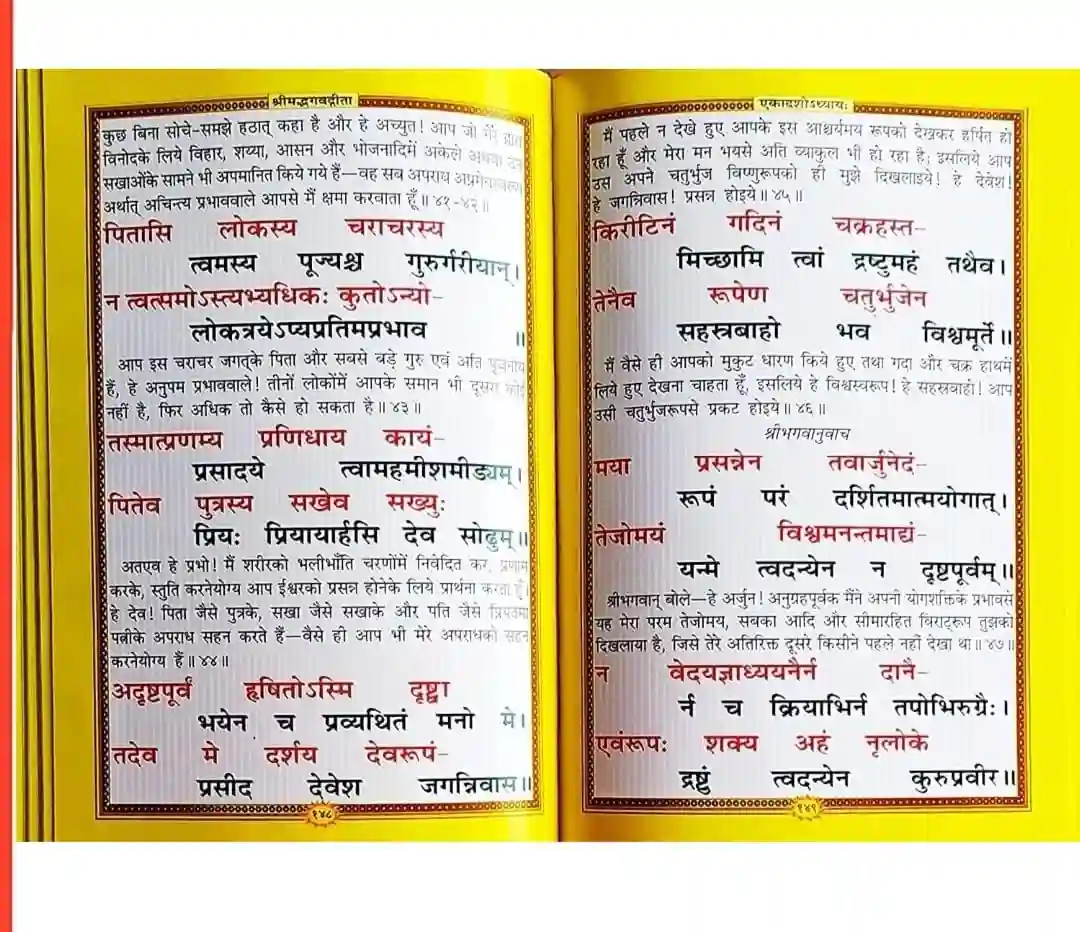 श्रीमद्भगवद्गीता
कुछ बिना सोचे-समझे हठात् कहा है और हे अच्युत! आप जो मेरे द्वारा
विनोदके लिये विहार, शय्या, आसन और भोजनादिमें अकेले अथवा उन
सखाओंके सामने भी अपमानित किये गये हैं—वह सब अपराध अप्रमेयस्वरूप
अर्थात् अचिन्त्य प्रभाववाले आपसे मैं क्षमा करवाता हूँ॥ ४१-४२॥
पितासि लोकस्य चराचरस्य
त्वमस्य पूज्यश्च गुरुर्गरीयान्।
न त्वत्समोऽस्त्यभ्यधिकः कुतोऽन्यो-
लोकत्रयेऽप्यप्रतिमप्रभाव ॥
आप इस चराचर जगत्के पिता और सबसे बड़े गुरु एवं अति पूजनीय
हैं, हे अनुपम प्रभाववाले! तीनों लोकोंमें आपके समान भी दूसरा कोई
नहीं है, फिर अधिक तो कैसे हो सकता है॥ ४३॥
तस्मात्प्रणम्य प्रणिधाय कायं-
प्रसादये त्वामहमीशमीड्यम्।
पितेव पुत्रस्य सखेव सख्युः
प्रियः प्रियायार्हसि देव सोढुम्॥
अतएव हे प्रभो! मैं शरीरको भलीभाँति चरणोंमें निवेदित कर, प्रणाम
करके, स्तुति करनेयोग्य आप ईश्वरको प्रसन्न होनेके लिये प्रार्थना करता हूँ।
हे देव! पिता जैसे पुत्रके, सखा जैसे सखाके और पति जैसे प्रियतमा
पत्नीके अपराध सहन करते हैं—वैसे ही आप भी मेरे अपराधको सहन
करनेयोग्य हैं॥ ४४॥
अदृष्टपूर्वं हृषितोऽस्मि दृष्ट्वा
भयेन च प्रव्यथितं मनो मे।
तदेव मे दर्शय देवरूपं-
प्रसीद देवेश जगन्निवास॥
१४८
एकादशोऽध्यायः
मैं पहले न देखे हुए आपके इस आश्चर्यमय रूपको देखकर हर्षित हो
रहा हूँ और मेरा मन भयसे अति व्याकुल भी हो रहा है; इसलिये आप
उस अपने चतुर्भुज विष्णुरूपको ही मुझे दिखलाइये! हे देवेश!
हे जगन्निवास! प्रसन्न होइये॥ ४५॥
किरीटिनं गदिनं चक्रहस्त-
मिच्छामि त्वां द्रष्टुमहं तथैव।
तेनैव रूपेण चतुर्भुजेन
सहस्त्रबाहो भव विश्वमूर्ते॥
मैं वैसे ही आपको मुकुट धारण किये हुए तथा गदा और चक्र हाथमें
लिये हुए देखना चाहता हूँ, इसलिये हे विश्वस्वरूप! हे सहस्त्रबाहो! आप
उसी चतुर्भुजरूपसे प्रकट होइये॥ ४६॥
श्रीभगवानुवाच
मया प्रसन्नेन तवार्जुनेदं-
रूपं परं दर्शितमात्मयोगात्।
तेजोमयं विश्वमनन्तमाद्यं-
यन्मे त्वदन्येन न दृष्टपूर्वम्॥
श्रीभगवान् बोले—हे अर्जुन! अनुग्रहपूर्वक मैंने अपनी योगशक्तिके प्रभावसे
यह मेरा परम तेजोमय, सबका आदि और सीमारहित विराट्रूप तुझको
दिखलाया है, जिसे तेरे अतिरिक्त दूसरे किसीने पहले नहीं देखा था॥ ४७॥
न वेदयज्ञाध्ययनैर्न दानै-
र्न च क्रियाभिर्न तपोभिरुग्रैः।
एवंरूपः शक्य अहं नृलोके
द्रष्टुं त्वदन्येन कुरुप्रवीर॥
१४९